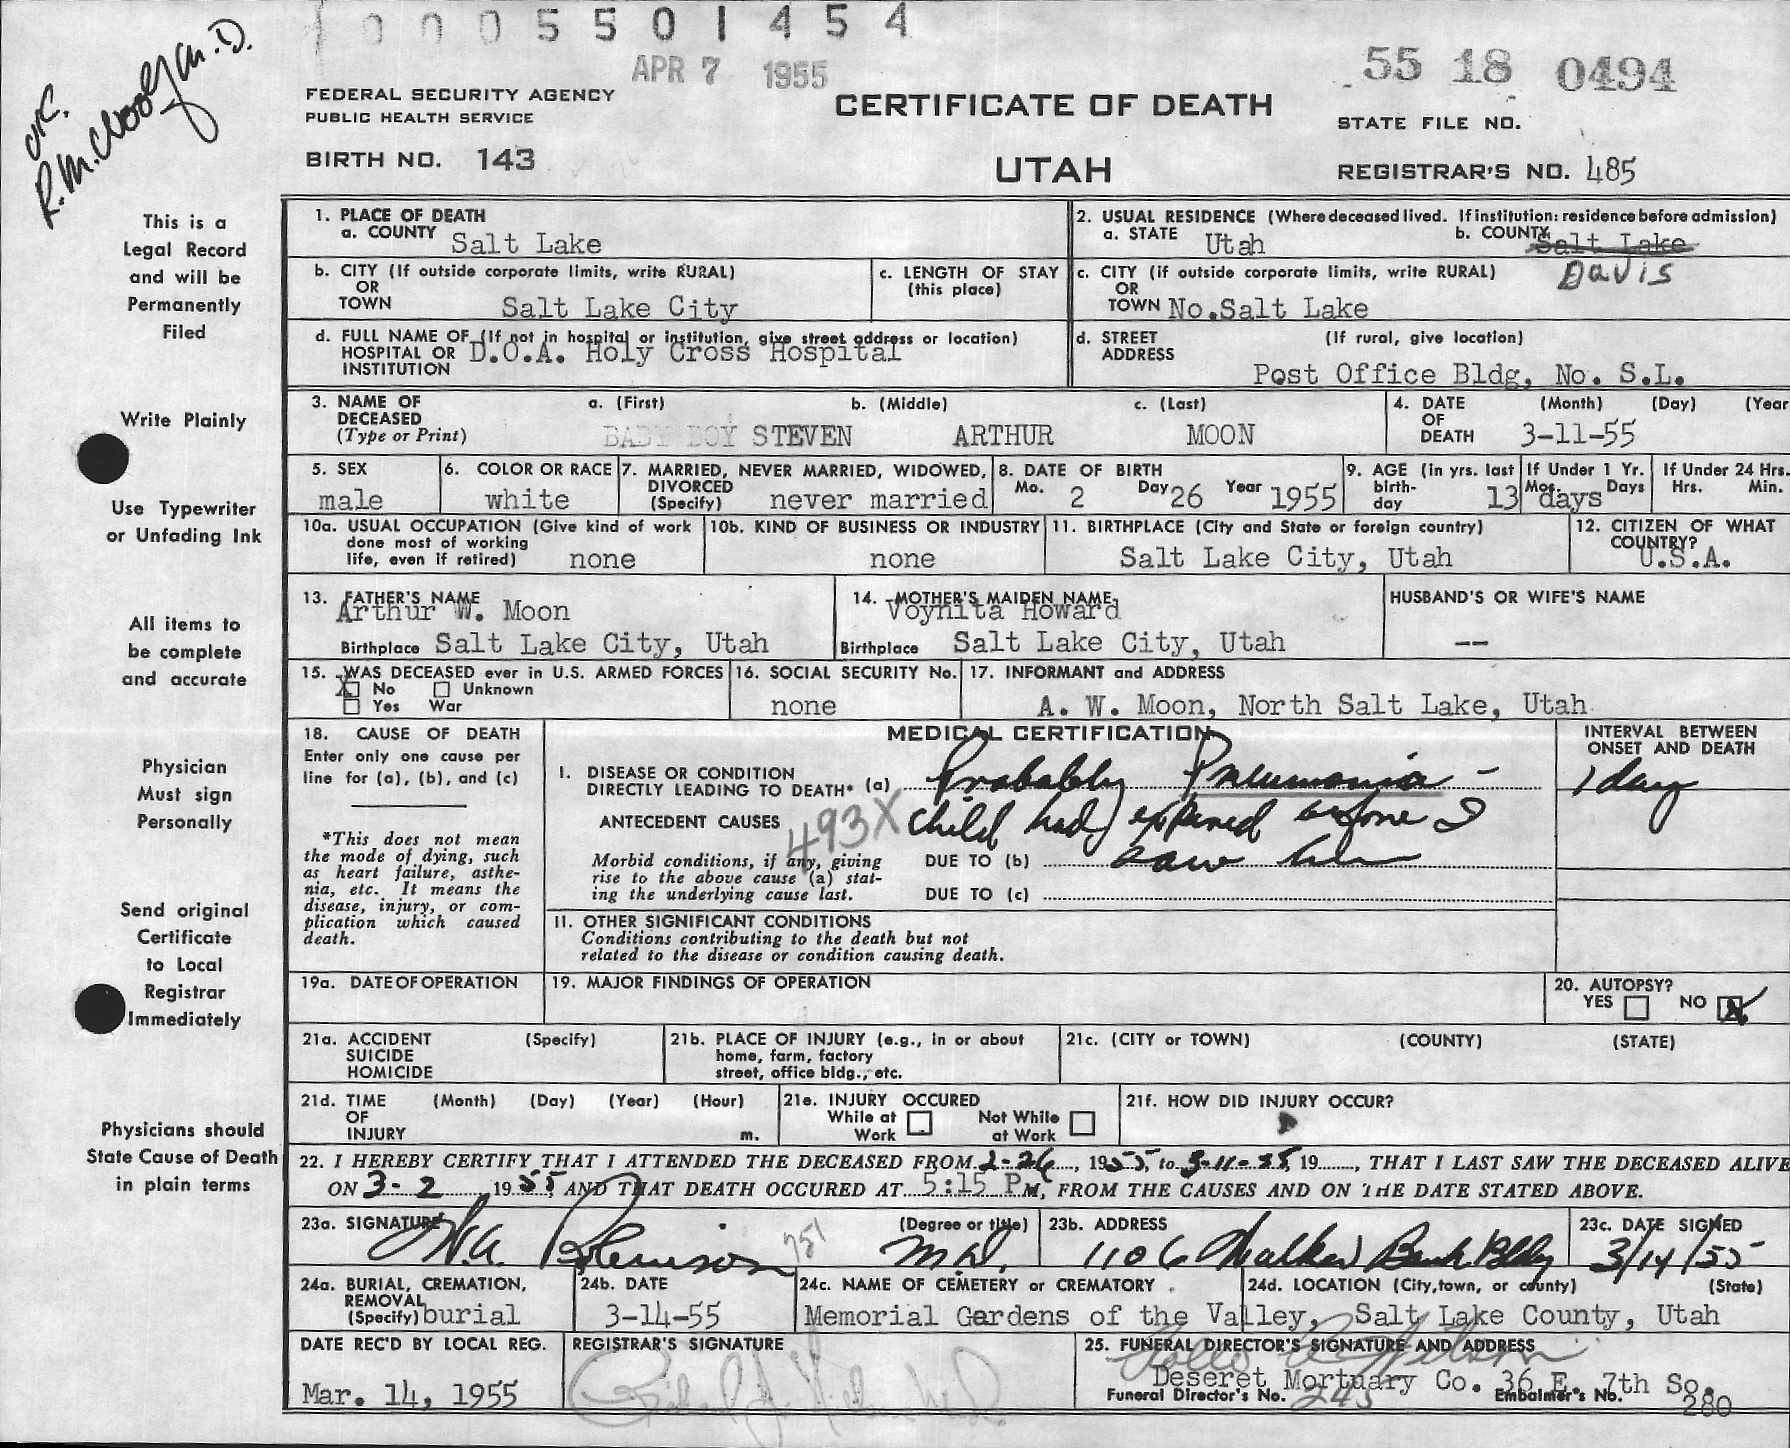 0005501454
APR 7 1955
55 18 0494
OK.
R.M. Wooly M.D.
FEDERAL SECURITY AGENCY
PUBLIC HEALTH SERVICE
BIRTH NO. 143
CERTIFICATE OF DEATH
UTAH
STATE FILE NO.
REGISTRAR'S NO. 485
This is a
Legal Record
and will be
Permanently
Filed
Write Plainly
Use Typewriter
or Unfading Ink
All items to
be complete
and accurate
Physician
Must sign
Personally
Send original
Certificate
to Local
Registrar
Immediately
Physicians should
State Cause of Death
in plain terms
1. PLACE OF DEATH
a. COUNTY Salt Lake
2. USUAL RESIDENCE (Where deceased lived. If institution: residence before admission)
a. STATE Utah b. COUNTY Salt Lake
Davis
b. CITY (If outside corporate limits, write RURAL)
OR
TOWN Salt Lake City
c. LENGTH OF STAY
(this place)
c. CITY (if outside corporate limits, write RURAL)
OR
TOWN No.Salt Lake
d. FULL NAME OF (If not in hospital or institution, give street address or location)
HOSPITAL OR D.O.A. Holy Cross Hospital
INSTITUTION
d. STREET (If rural, give location)
ADDRESS
Post Office Bldg, No. S.L.
3. NAME OF a. (First) b. (Middle) c. (Last)
DECEASED
(Type or Print) BABY BOY STEVEN ARTHUR MOON
4. DATE (Month) (Day) (Year
OF
DEATH 3-11-55
5. SEX
male
6. COLOR OR RACE
white
7. MARRIED, NEVER MARRIED, WIDOWED,
DIVORCED
(Specify) never married
8. DATE OF BIRTH
Mo. 2 Day 26 Year 1955
9. AGE (in yrs. last
birth-
day 13 days
If Under 1 Yr.
Mos. Days
If Under 24 Hrs.
Hrs. Min.
10a. USUAL OCCUPATION (Give kind of work
done most of working
life, even if retired) none
10b. KIND OF BUSINESS OR INDUSTRY
none
11. BIRTHPLACE (City and State or foreign country)
Salt Lake City, Utah
12. CITIZEN OF WHAT
COUNTRY?
U.S.A.
13. FATHER'S NAME
Arthur W. Moon
Birthplace Salt Lake City, Utah
14. MOTHER'S MAIDEN NAME
Voynita Howard
Birthplace Salt Lake City, Utah
HUSBAND'S OR WIFE'S NAME
--
15. WAS DECEASED ever in U.S. ARMED FORCES
X No Unknown
Yes War
16. SOCIAL SECURITY No.
none
17. INFORMANT and ADDRESS
A. W. Moon, North Salt Lake, Utah
18. CAUSE OF DEATH
Enter only one cause per
line for (a), (b), and (c)
*This does not mean
the mode of dying, such
as heart failure, asthe-
nia, etc. It means the
disease, injury, or com-
plication which caused
death.
MEDICAL CERTIFICATION
INTERVAL BETWEEN
ONSET AND DEATH
I. DISEASE OR CONDITION
DIRECTLY LEADING TO DEATH* (a) Probably Pneumonia - 1 day
ANTECEDENT CAUSES 493X child had expired before I
Morbid conditions, if any, giving DUE TO (b) saw him
rise to the above cause (a) stat-
ing the underlying cause last. DUE TO (c)
II. OTHER SIGNIFICANT CONDITIONS
Conditions contributing to the death but not
related to the disease or condition causing death.
19a. DATE OF OPERATION
19. MAJOR FINDINGS OF OPERATION
20. AUTOPSY?
YES NO X
21a. ACCIDENT (Specify)
SUICIDE
HOMICIDE
21b. PLACE OF INJURY (e.g., in or about
home, farm, factory
street, office bldg., etc.
21c. (CITY or TOWN) (COUNTY) (STATE)
21d. TIME (Month) (Day) (Year) (Hour)
OF
INJURY m.
21e. INJURY OCCURED
While at Work Not While at Work
21f. HOW DID INJURY OCCUR?
22. I HEREBY CERTIFY THAT I ATTENDED THE DECEASED FROM 2-26, 1955, to 3-11-55, 19....., THAT I LAST SAW THE DECEASED ALIVE
ON 3-2 1955, AND THAT DEATH OCCURED AT 5:15 PM, FROM THE CAUSES AND ON THE DATE STATED ABOVE.
23a. SIGNATURE (Degree or title)
Robinson 751 M.D.
23b. ADDRESS
1106 Walker Bank Bldg
23c. DATE SIGNED
3/14/55
24a. BURIAL, CREMATION,
REMOVAL
(Specify) burial
24b. DATE
3-14-55
24c. NAME OF CEMETERY or CREMATORY
Memorial Gardens of the Valley,
24d. LOCATION (City,town, or county) (State)
Salt Lake County, Utah
DATE REC'D BY LOCAL REG.
Mar. 14, 1955
REGISTRAR'S SIGNATURE
25. FUNERAL DIRECTOR'S SIGNATURE AND ADDRESS
Deseret Mortuary Co. 36 E. 7th So.
Funeral Director's No. 245 Embalmer's No. 280